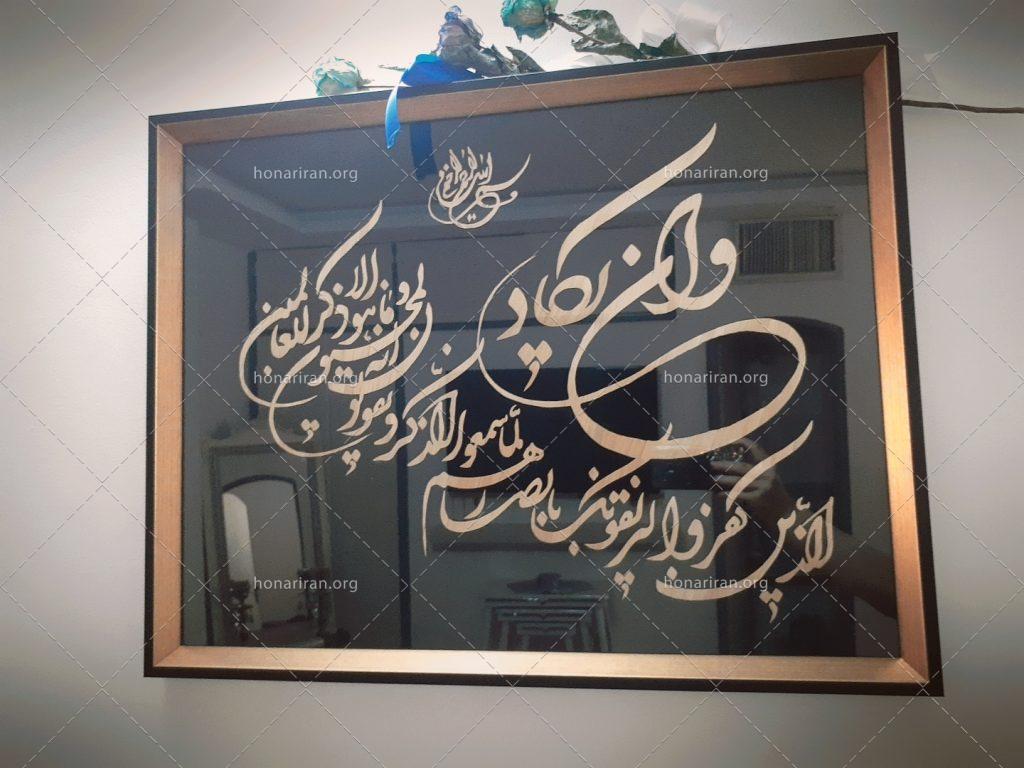 بسم الله الرحمن الرحیم
وان یکاد
الذین کفروا لیزلقونک بابصارهم
لما سمعوا الذکر و یقولون
انه لمجنون
و ما هو الا ذکر للعالمین
honariran.org honariran.org
honariran.org honariran.org
honariran.org honariran.org